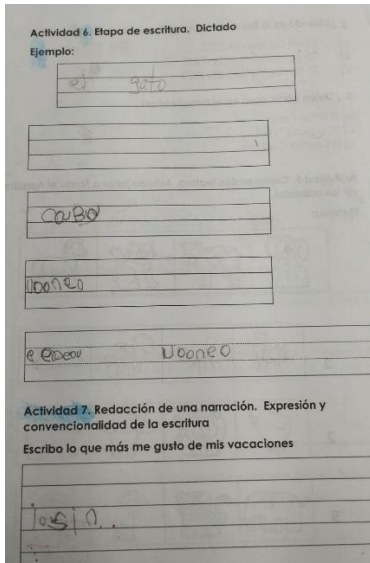 Actividad 6. Etapa de escritura. Dictado
Ejemplo:
el gato
caBa
Actividad 7. Redacción de una narración. Expresión y
convencionalidad de la escritura
Escribo lo que más me gusto de mis vacaciones